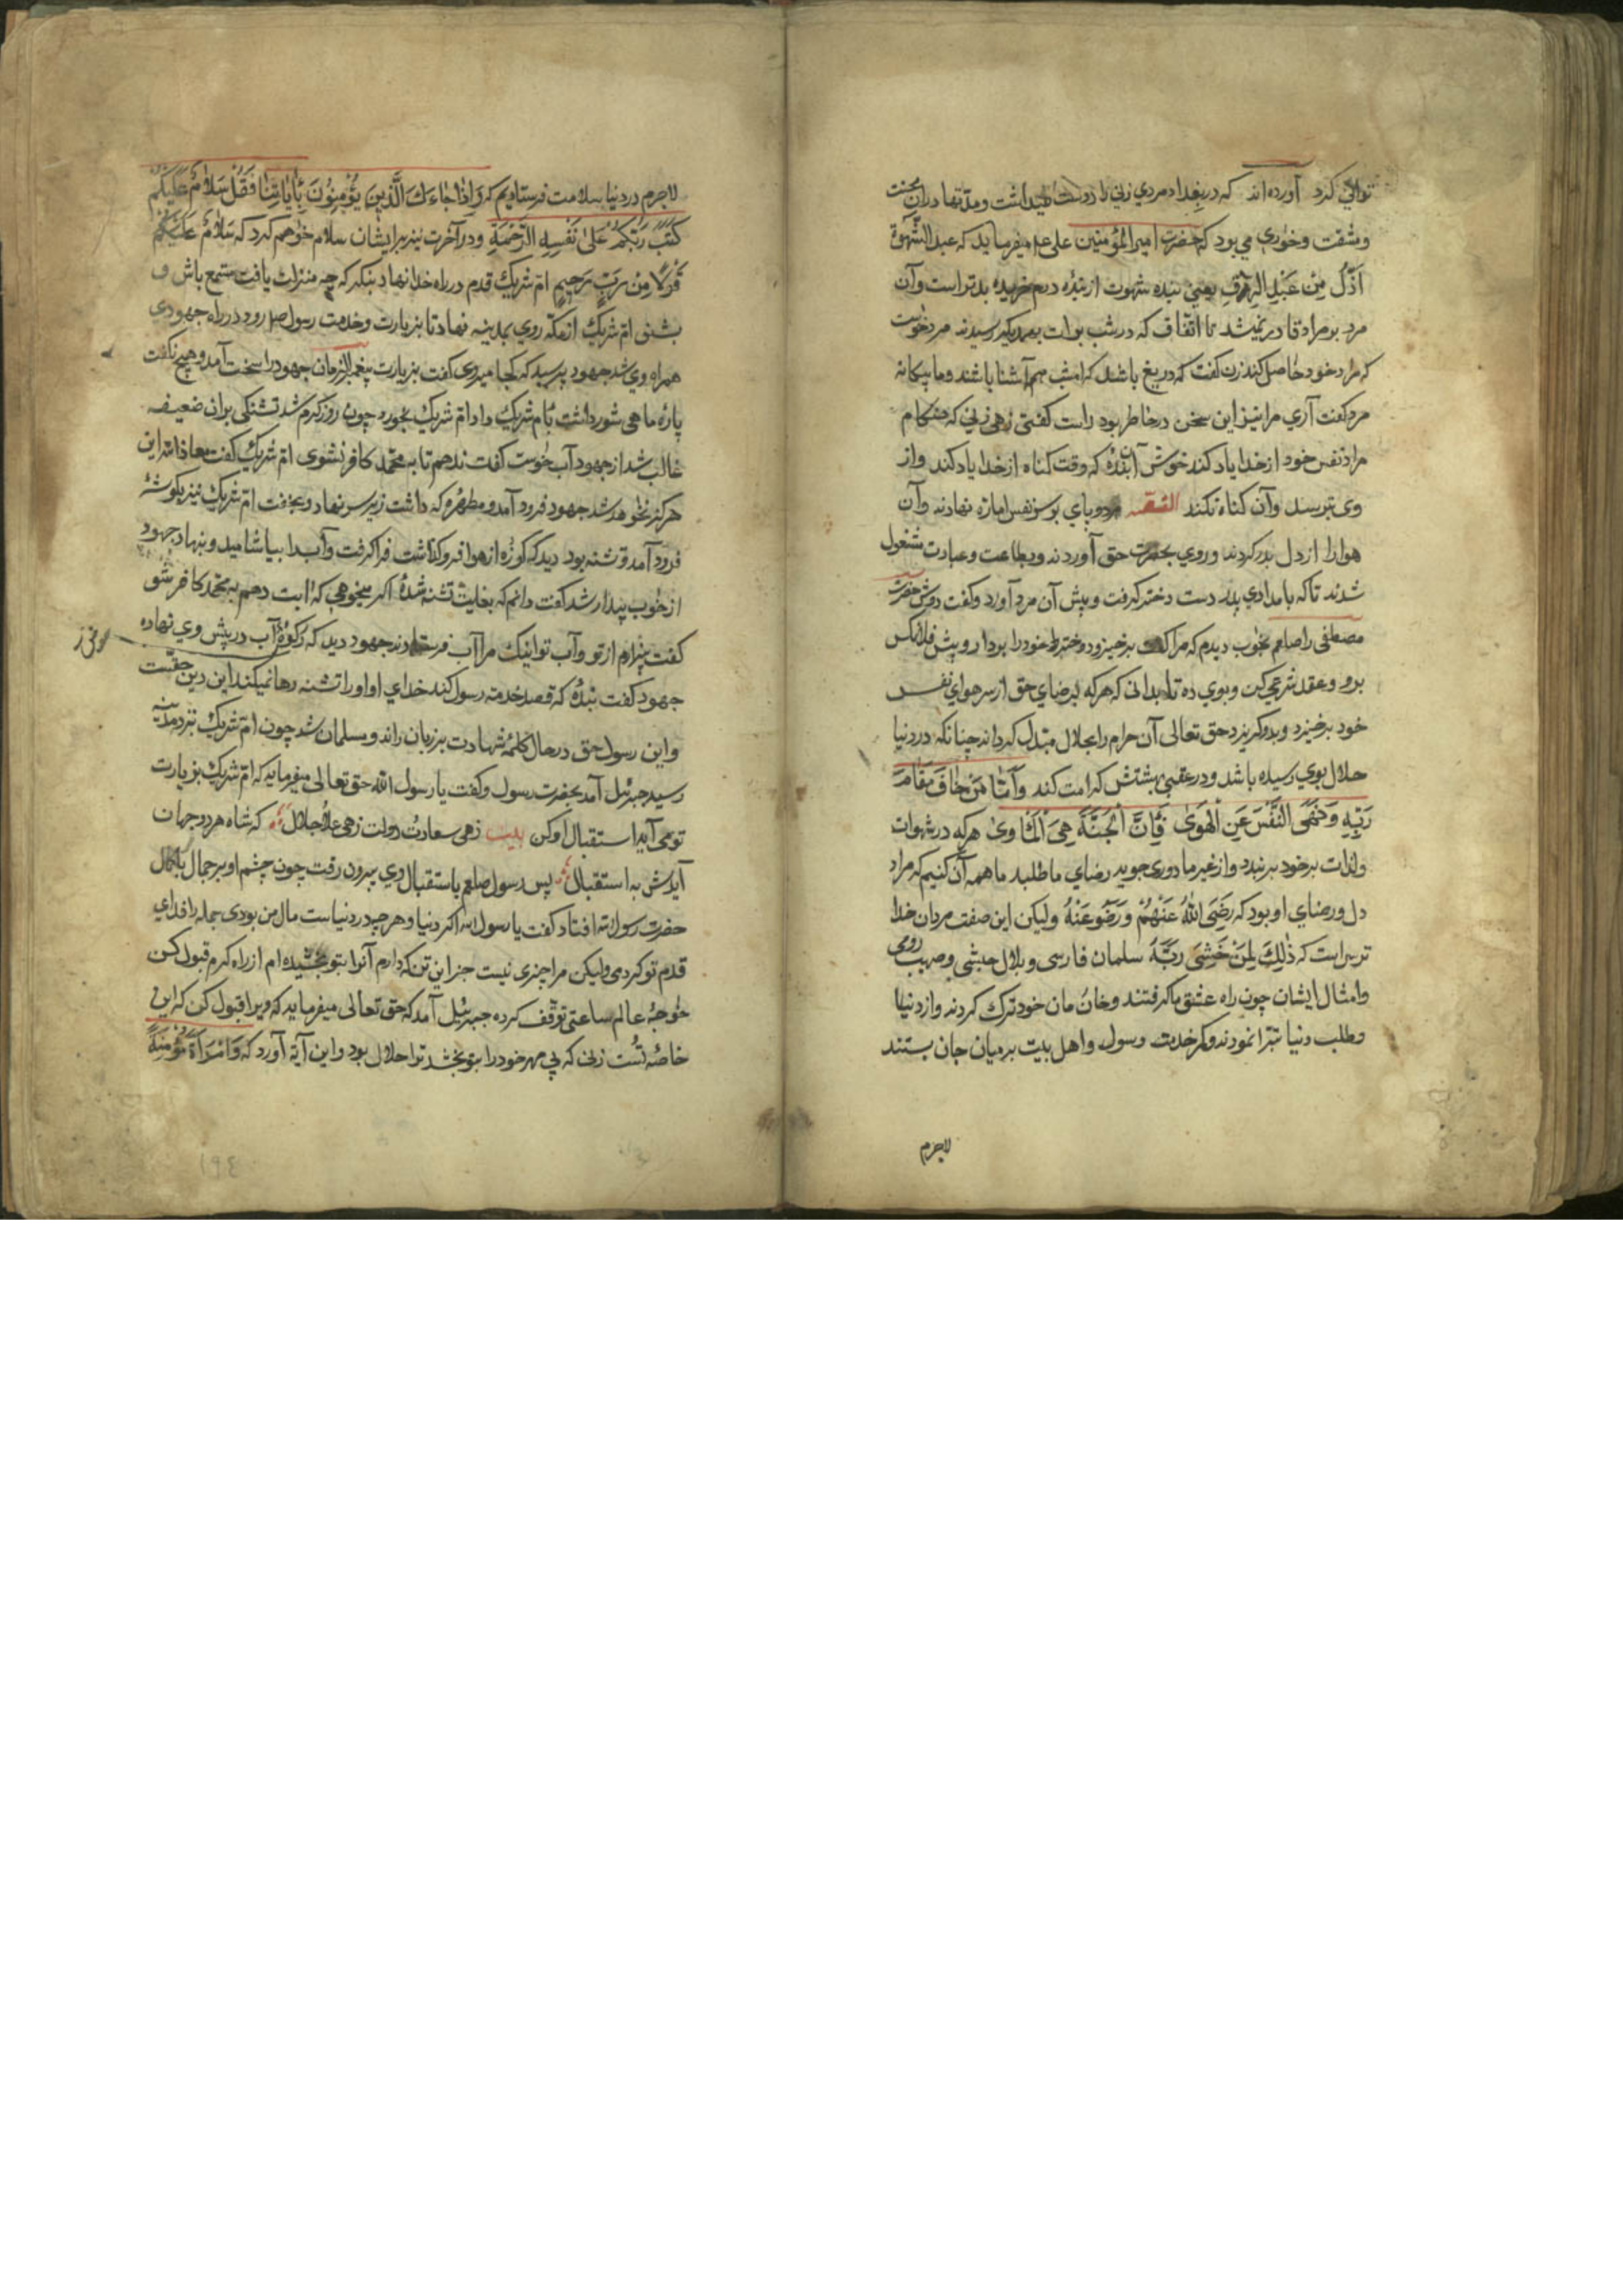 توانی کرد آورده‌اند که در بغداد مردی زنی را دوست میداشت و مدتها در آن محنت
و مشقت و خواری می بود که حضرت امیرالمؤمنین علی علم میفرماید که عبد الشَّهْوَة
اَذَلُّ مِنْ عَبْدِ الرِّقِ یعنی بنده شهوت از بنده درم خریده بدتر است و آن
مرد بر مراد قادر نمیشد تا اتفاق که در شب برات بهمدیکر رسیدند مرد خواست
که مراد خود حاصل کند زن کفت که دریغ باشد که امشب هم آشنا باشند و ما بیکانه
مرد کفت آری مرا نیز این سخن در خاطر بود راست کفتی زهی زنی که هنکام
مراد نفس خود از خدا یاد کند خوش آن بندۀ که وقت کناه از خدا یاد کند و از
وی بترسد و آن کناه نکند القصه هر دو پای بر سر نفس اماره نهادند و آن
هوا را از دل بدر کردند و روی بحضرت حق آوردند و بطاعت و عبادت مشغول
شدند تا که بامدادی پدر دست دختر کرفت و پیش آن مرد آورد و کفت دوش حضرت
مصطفی را صلعم بخواب دیدم که مرا کفت برخیز و دختر خود را بردار و پیش فلانکس
برو و عقد شرعی کن و بوی ده تا بدانی که هر که برضای حق از سر هوای نفس
خود برخیزد و بدو کریزد حق تعالی آن حرام را بحلال مبدل کرداند چنانکه در دنیا
حلال بوی رسیده باشد و در عقبی بهشتش کرامت کند وَاَمّا مَنْ خافَ مَقامَ
رَبِّهِ وَنَهَی النَّفْسَ عَنِ الْهَوٰی فَاِنَّ الْجَنَّةَ هِیَ الْمَاْوٰی هر که در شهوات
و لذات بر خود ببندد و از غیر ما دوری جوید رضای ما طلبد ما همه آن کنیم که مراد
دل و رضای او بود که رَضِیَ اللهُ عَنْهُمْ وَرَضُوا عَنْهُ ولیکن این صفت مردان خدا
ترس است که ذٰلِكَ لِمَنْ خَشِیَ رَبَّهُ سلمان فارسی و بلال حبشی و صهیب رومی
و امثال ایشان چون راه عشق ما کرفتند و خان و مان خود ترک کردند و از دنیا
و طلب دنیا تبرا نمودند و کمر خدمت رسول و اهل بیت بر میان جان بستند
لاجرم
لاجرم در دنیا سلامت فرستادیم که وَاِذٰا جٰاءَكَ الَّذِينَ يُؤْمِنُونَ بِاٰيٰاتِنٰا فَقُلْ سَلٰامٌ عَلَيْكُمْ
كَتَبَ رَبُّكُمْ عَلٰی نَفْسِهِ الرَّحْمَةَ و در آخرت نیز بر ایشان سلام خواهم کرد که سَلٰامٌ عَلَيْكُمْ
قَوْلًا مِنْ رَبٍّ رَحِيمٍ ام شریک قدم در راه خدا نهاد بنکر که چه منزلت یافت مستمع باش و
بشنو ام شریک از مکه روی بمدینه نهاد تا بزیارت و خدمت رسول صلم رود در راه جهودی
همراه وی شد جهود پرسید که کجا میروی کفت بزیارت پیغمبر آخر الزمان جهود را سخت آمد و هیچ نکفت
پارۀ ماهی شور داشت بام شریک داد ام شریک بخورد چون روز کرم شد تشنکی بر آن ضعیفه
غالب شد از جهود آب خواست کفت ندهم تا به محمد کافر نشوی ام شریک کفت معاذ الله این
هرکز نخواهد شد جهود فرود آمد و مطهرۀ که داشت زیر سر نهاد و بخفت ام شریک نیز بکوشۀ
فرود آمد و تشنه بود دید که کوزۀ از هوا فروکذاشت فرا کرفت و آب را بیاشامید و بنهاد جهود
از خواب بیدار شد کفت دانم که بغایت تشنه شدۀ اکر میخواهی که آبت دهم به محمد کافر شو
کفت بیزارم از تو و آب تو اینک مرا آب فرستادند جهود دید که رکوۀ آب در پیش وی نهاده
جهود کفت بندۀ که قصد خدمت رسول کند خدای او او را تشنه رها نمیکند این دین حقیست
و این رسول حق در حال کلمۀ شهادت بر زبان راند و مسلمان شد چون ام شریک نزد مدینه
رسید جبرئیل آمد بحضرت رسول و کفت یا رسول الله حق تعالی میفرماید که ام شریک بزیارت
تو می آید استقبال او کن بیت زهی سعادت و دولت زهی علا و جلال که شاه هر دو جهان
آیدش به استقبال پس رسول صلعم باستقبال وی بیرون رفت چون چشم او بر جمال با کمال
حضرت رسول الله افتاد کفت یا رسول الله اکر دنیا و هر چه در دنیاست مال من بودی جمله را فدای
قدم تو کردمی ولیکن مرا چیزی نیست جز این تن که دارم آنرا بتو بخشیده ام از راه کرم قبول کن
خواجۀ عالم ساعتی توقف کرده جبرئیل آمد که حق تعالی میفرماید که ویرا قبول کن که این
خاصۀ تست زنی که بی مهر خود را بتو بخشد ترا حلال بود و این آیة آورد که وَامْرَاَةً مُؤْمِنَةً